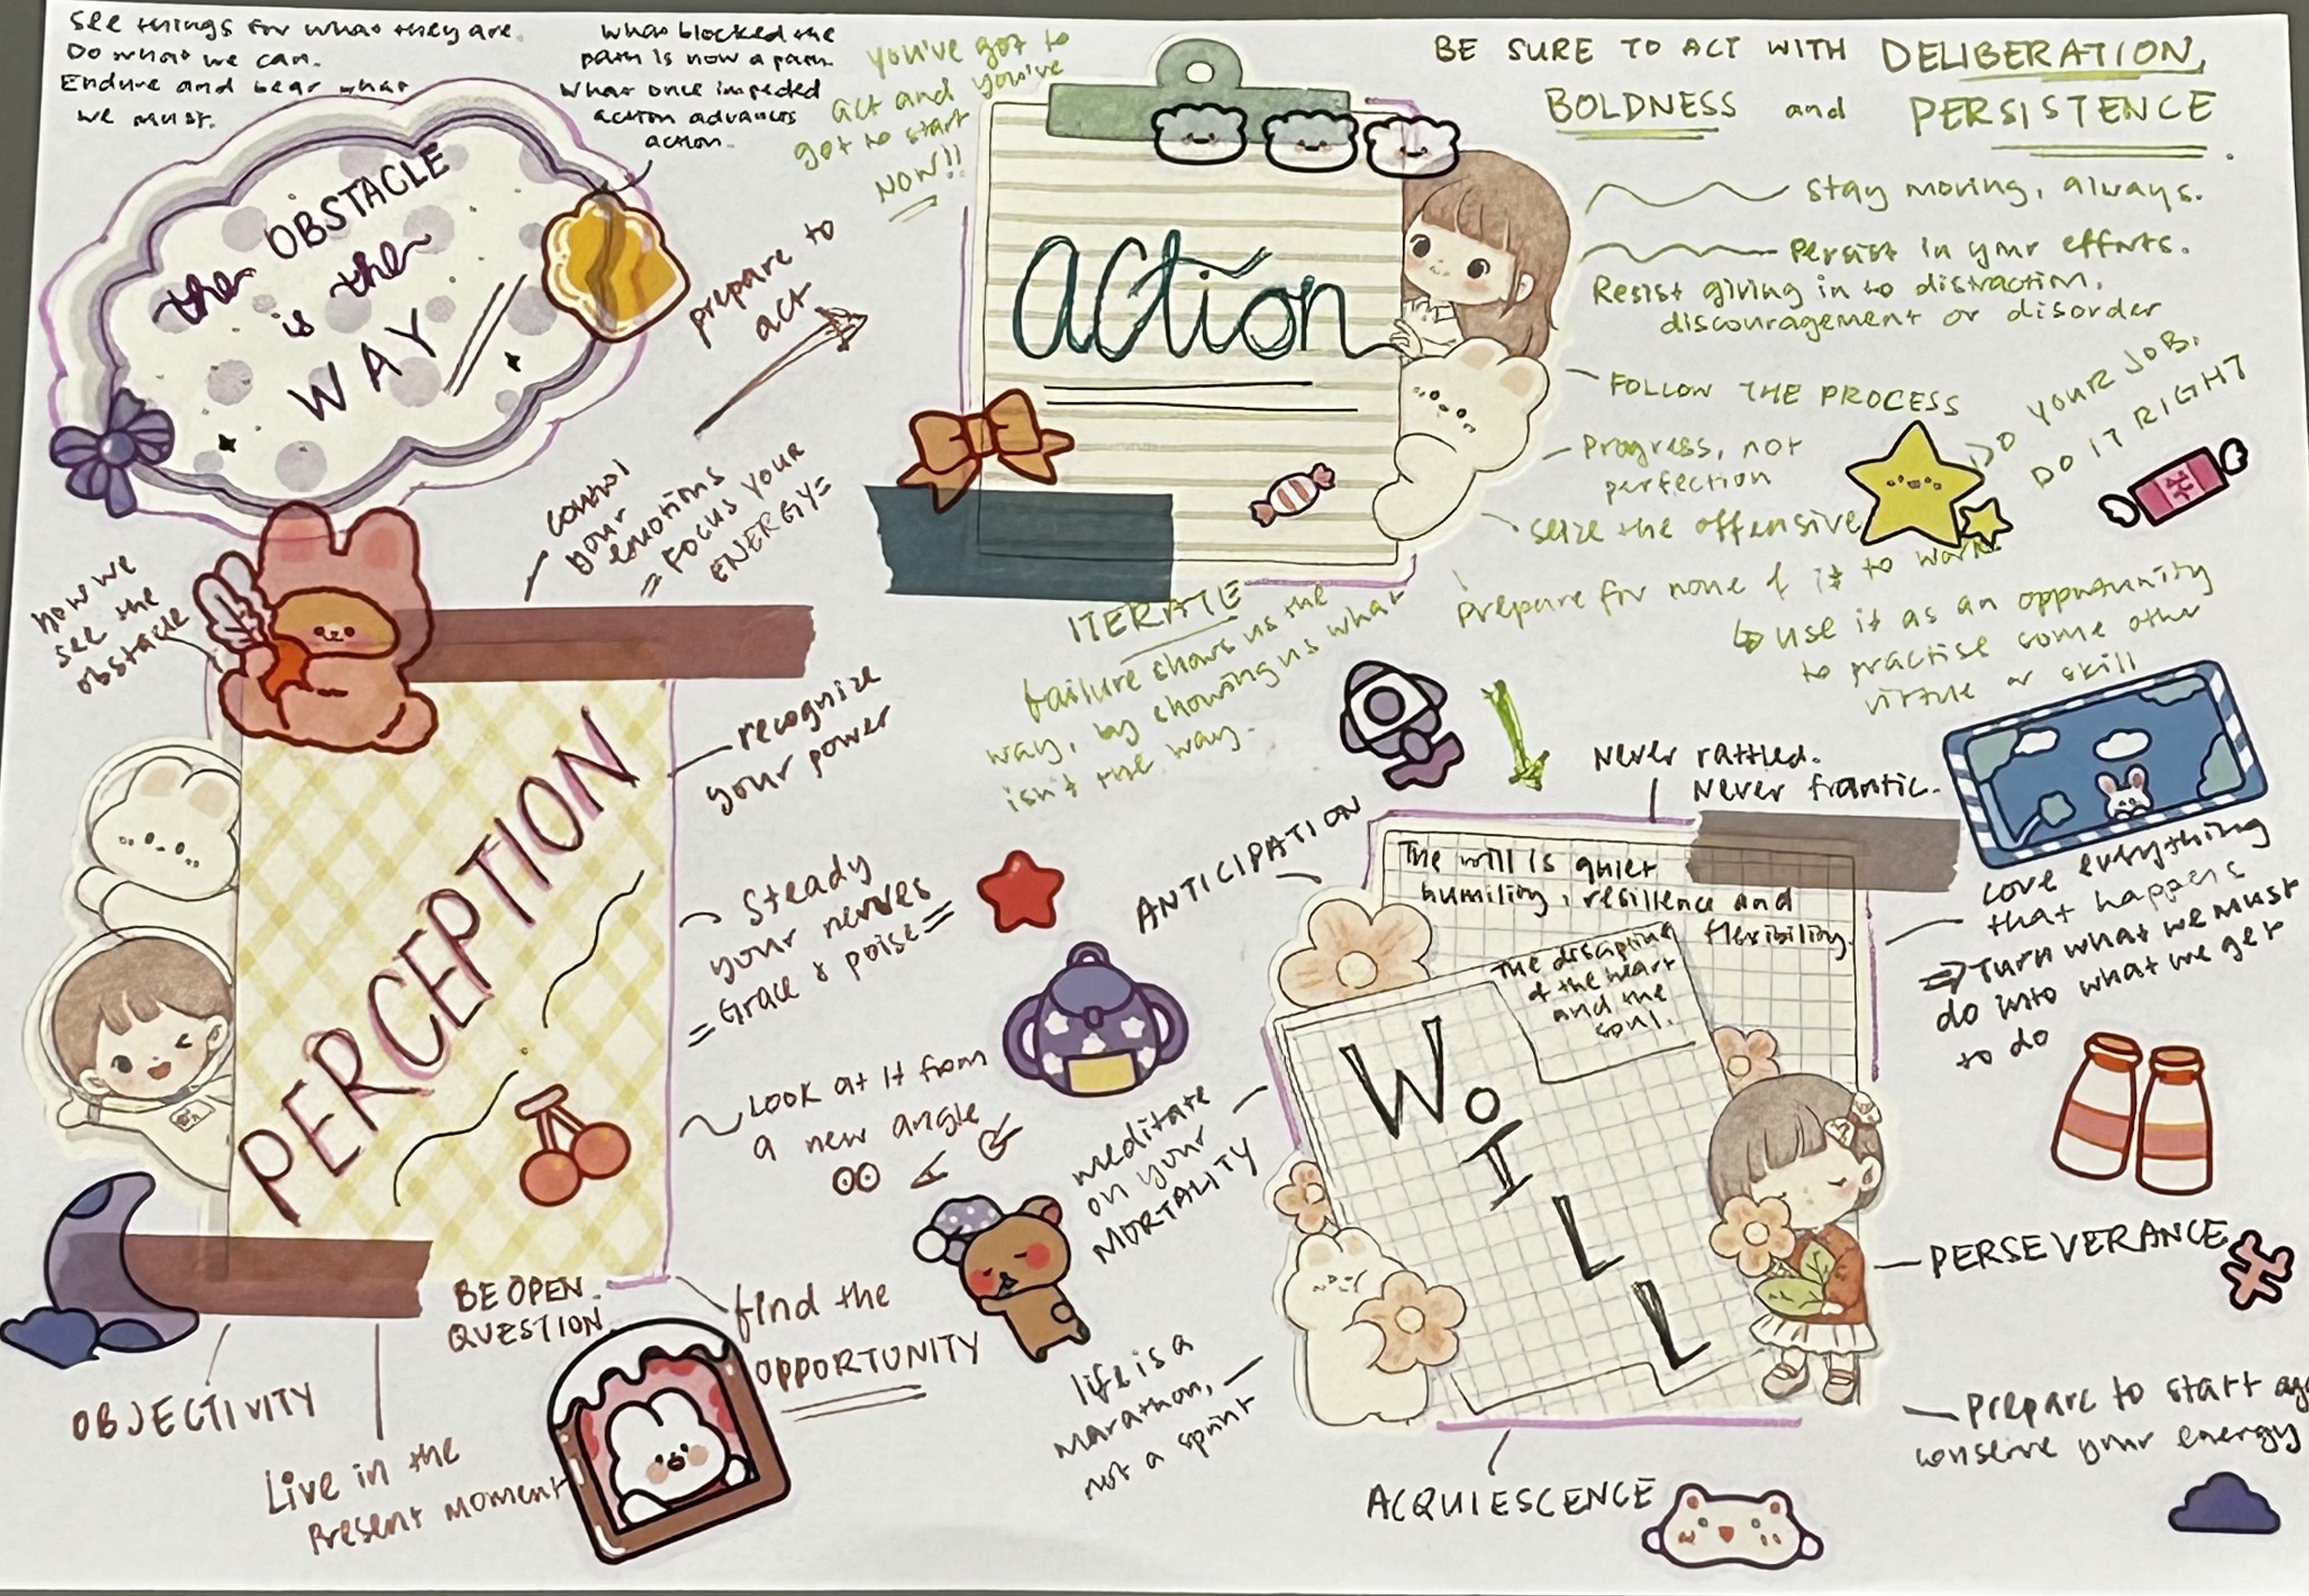 See things for what they are.
Do what we can.
Endure and bear what
we must.
What blocked the
path is now a path.
What once impeded
action advances
action.
the OBSTACLE
is the
WAY
prepare to
act
you've got to
act and you've
got to start
NOW!!
action
BE SURE TO ACT WITH DELIBERATION,
BOLDNESS and PERSISTENCE.
Stay moving, always.
Persist in your efforts.
Resist giving in to distraction,
discouragement or disorder
FOLLOW THE PROCESS
DO YOUR JOB.
DO IT RIGHT
Progress, not
perfection
seize the offensive
prepare for none of it to work
use it as an opportunity
to practise some other
virtue or skill
ITERATE
failure shows us the
way, by showing us what
isn't the way.
how we
see the
obstacle
control
your
emotions
= FOCUS YOUR
ENERGY=
PERCEPTION
recognize
your power
Steady
your nerves
= Grace & poise =
Look at it from
a new angle
find the
OPPORTUNITY
BE OPEN.
QUESTION.
OBJECTIVITY
Live in the
Present moment
Never rattled.
Never frantic.
ANTICIPATION
The will is quiet
humility, resilience and
flexibility.
The discipline
of the heart
and the
soul.
WILL
Love everything
that happens
⇒ Turn what we must
do into what we get
to do
meditate
on your
MORTALITY
PERSEVERANCE
life is a
marathon,
not a sprint
Prepare to start
conserve your energy
ACQUIESCENCE